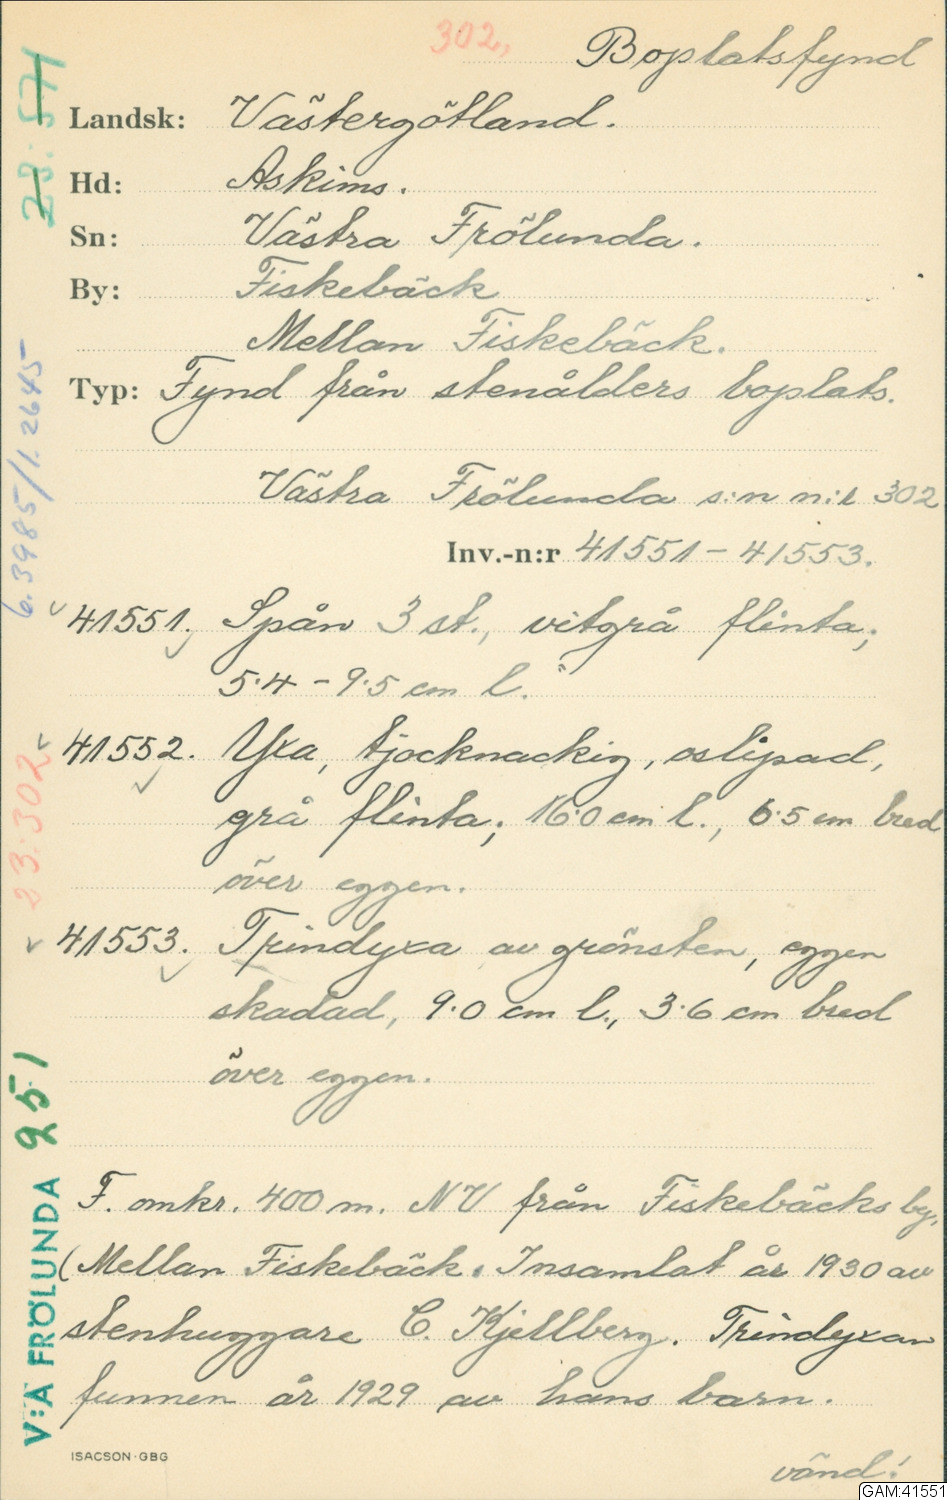 302,
Boplatsfynd
Landsk: Västergötland.
Hd: Askims.
Sn: Västra Frölunda.
By: Fiskebäck
Mellan Fiskebäck.
Typ: Fynd från stenålders boplats.
Västra Frölunda s:n n:r 302
Inv.-n:r 41551 – 41553.
41551. Spån 3 st., vitgrå flinta;
5.4 – 9.5 cm l.
41552. Yxa, tjocknackig, oslipad,
grå flinta; 16.0 cm l., 6.5 cm bred
över eggen.
41553. Trindyxa av grönsten, eggen
skadad, 9.0 cm l., 3.6 cm bred
över eggen.
F. omkr. 400 m. NV från Fiskebäcks by,
(Mellan Fiskebäck. Insamlat år 1930 av
stenhuggare C. Kjellberg. Trindyxan
funnen år 1929 av hans barn.
vänd!
ISACSON·GBG
GAM:41551
23:571
6.3985/1.2645
23:302
V:A FRÖLUNDA 251